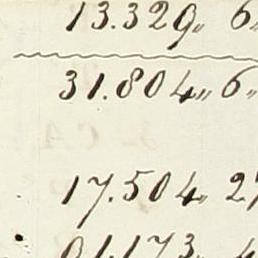 13.329,, 6,,
31.804,, 6,,
17.504,, 27